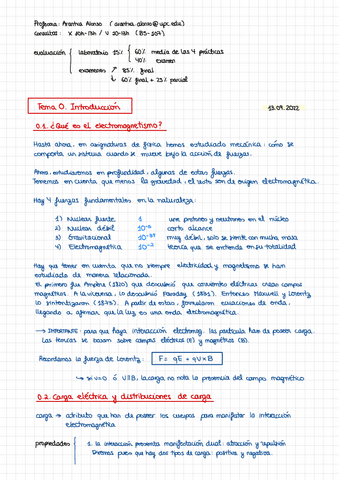 Profesora: Arantxa Alonso (arantxa.alonso@upc.edu)
Consultas: X 10h-13h / V 10-12h (B5-207)
evaluación
laboratorio 15%
60% media de las 4 prácticas
40% examen
examenes
85% final
60% final + 25% parcial
Tema 0. Introducción
13.09.2022
0.1. ¿Qué es el electromagnetismo?
Hasta ahora, en asignaturas de física hemos estudiado mecánica: cómo se
comporta un sistema cuando se mueve bajo la acción de fuerzas.
Ahora, estudiaremos en profundidad algunas de estas fuerzas.
Tenemos en cuenta que menos la gravedad, el resto son de origen electromagnético.
Hay 4 fuerzas fundamentales en la naturaleza:
1) Nuclear fuerte 1 une protones y neutrones en el núcleo
2) Nuclear débil corto alcance
3) Gravitacional muy débil, solo se siente con mucha masa
4) Electromagnética 10⁻² teoría que se entiende en su totalidad
Hay que tener en cuenta que no siempre electricidad y magnetismo se han
estudiado de manera relacionada.
El primero fue Ampère (1820) que descubrió que corrientes eléctricas crean campos
magnéticos. A la inversa, lo descubrió Faraday. Entonces Maxwell y Lorentz
lo sintetizaron (1873). A partir de estas, formularon ecuaciones de onda,
llegando a afirmar que la luz es una onda electromagnética.
→ IMPORTANTE: para que haya interacción electromag. las partículas han de poseer carga.
Las teorías se basan sobre campos eléctrico (E) y magnético (B).
Recordamos la fuerza de Lorentz: F = qE + qV×B
→ si v=0 ó V||B, la carga no nota la presencia del campo magnético
0.2. Carga eléctrica y distribuciones de carga
carga → atributo que han de poseer los cuerpos para manifestar la interacción
electromagnética
propiedades 1. la interacción presenta manifestación dual: atracción y repulsión
Diremos pues que hay dos tipos de carga: positiva y negativa.